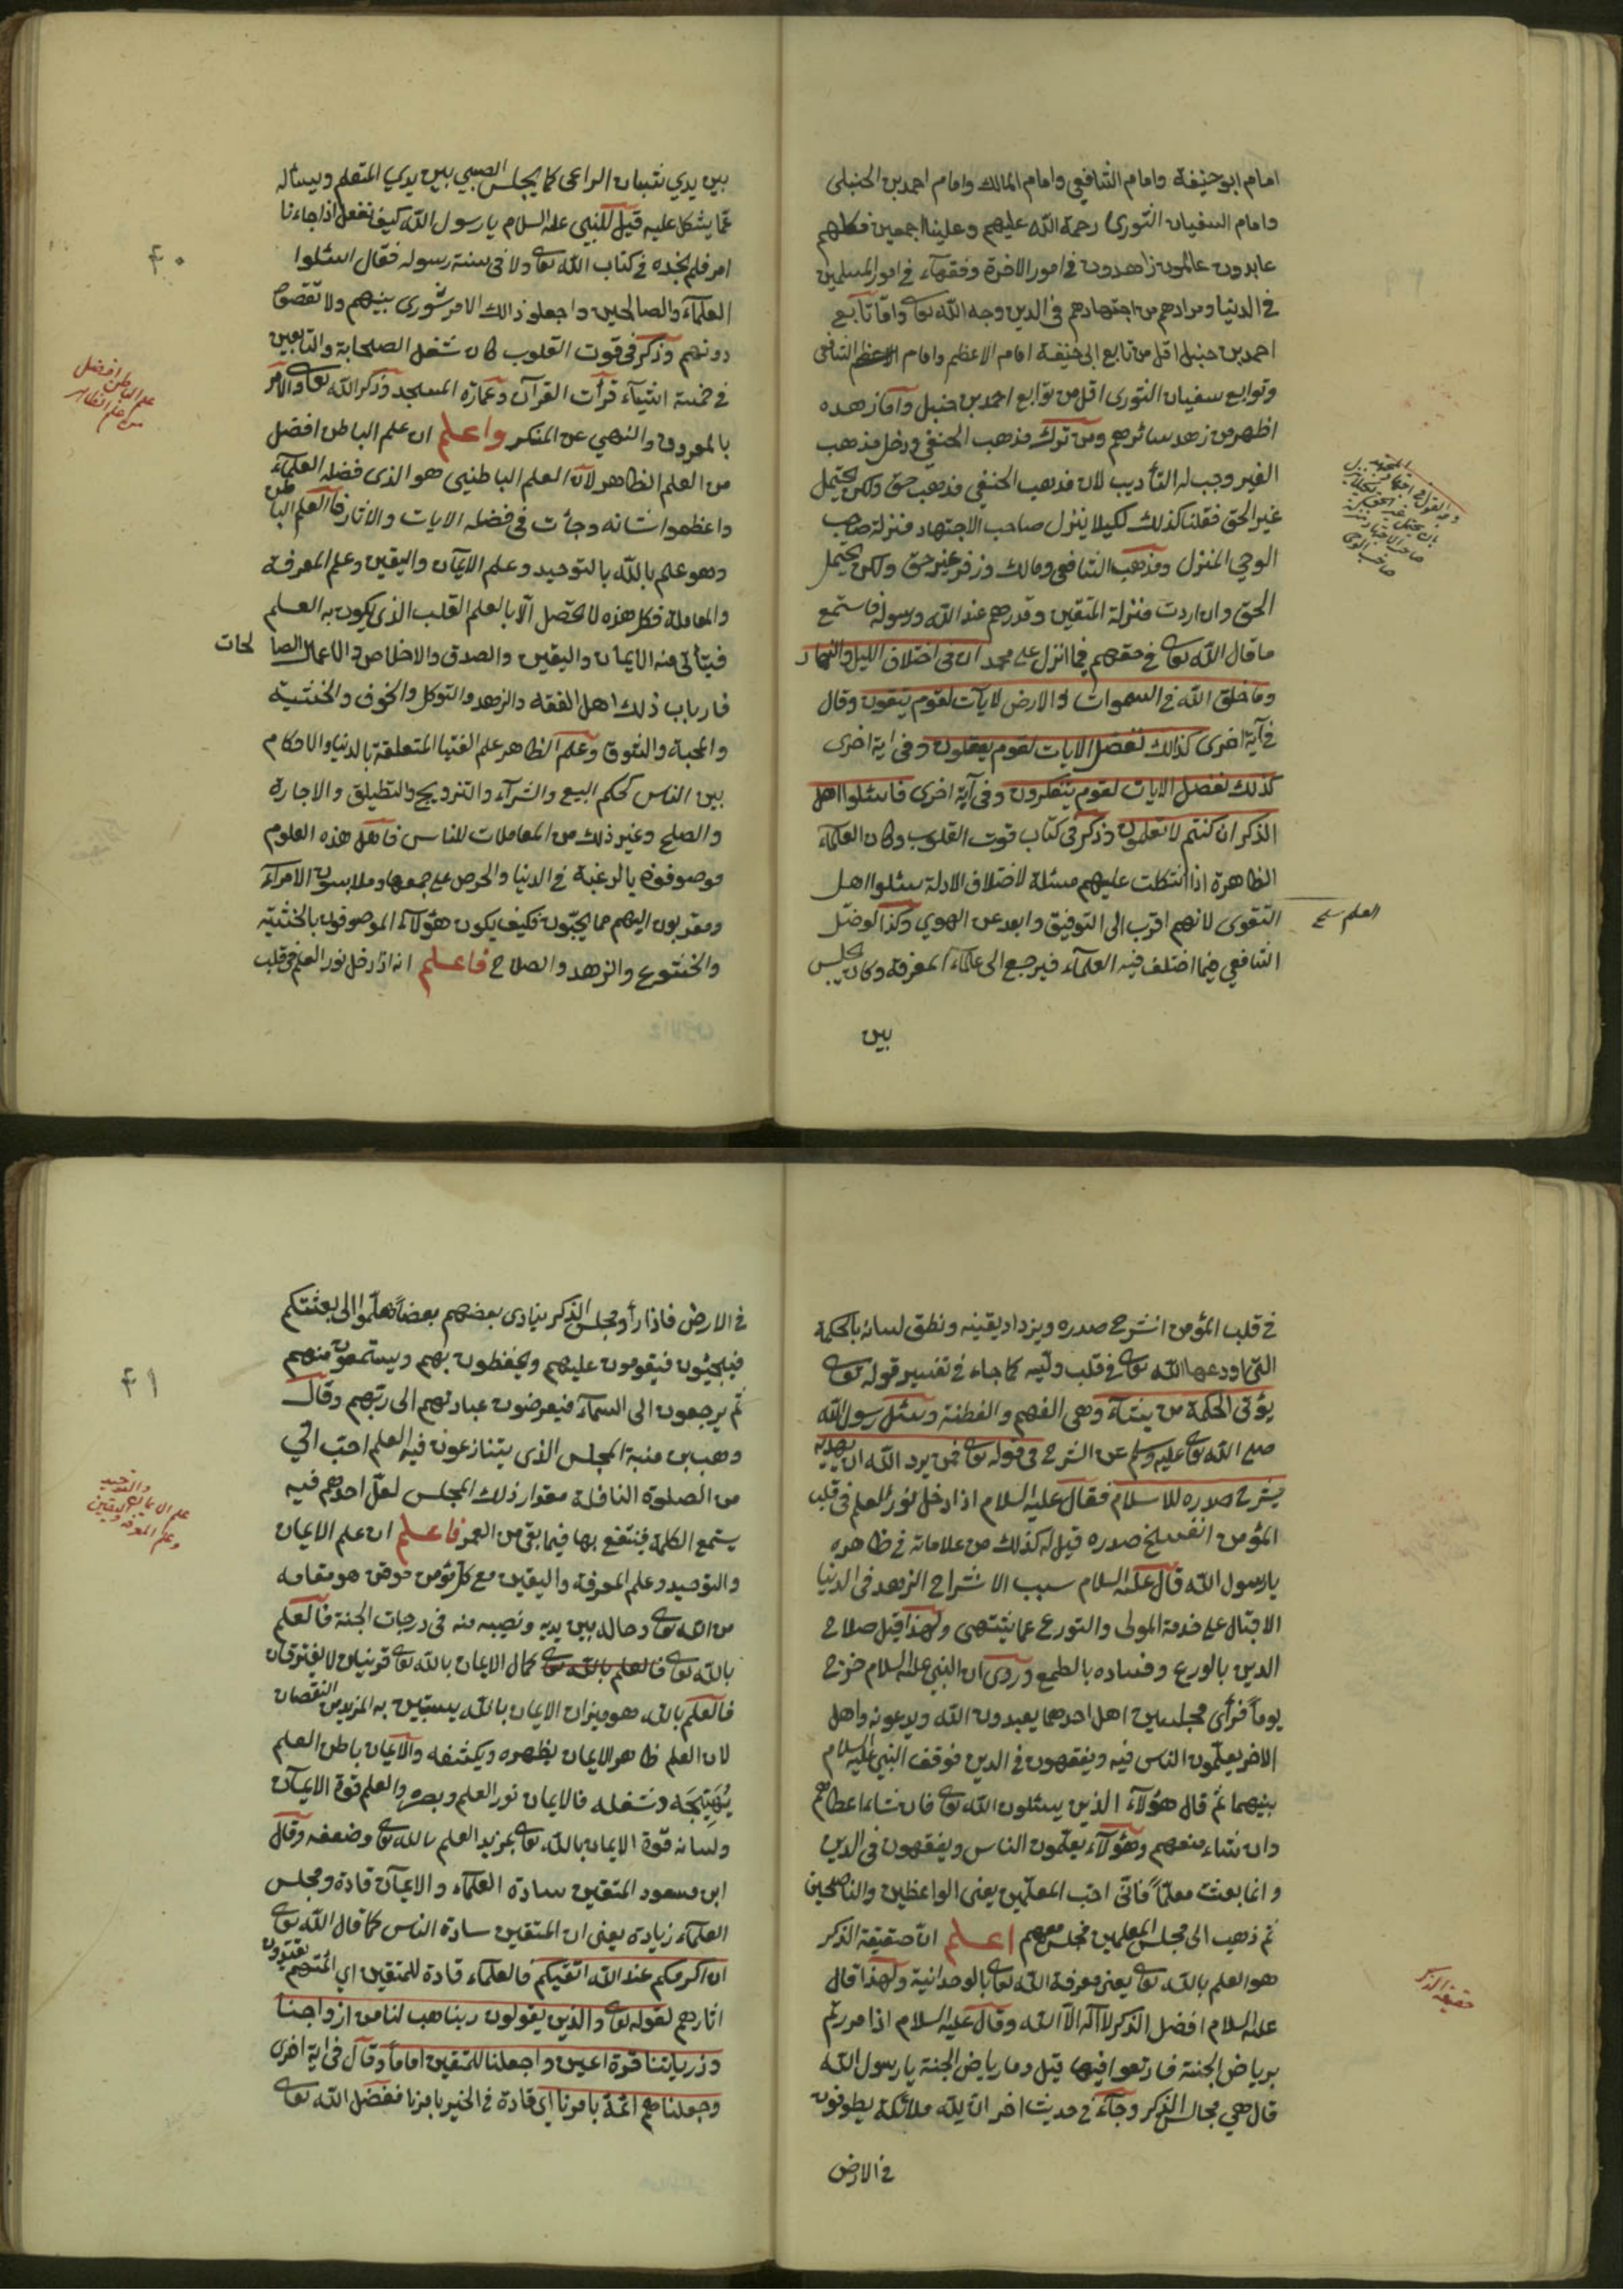 امام ابو حنيفة وامام الشافعي وامام المالك وامام احمد بن الحنبلى
وامام السفيان الثورى رحمة الله عليهم وعلينا اجمعين فكلهم
عابدون عالمون زاهدون فى امور الاخرة وفقهآء فى امور المسلمين
فى الدنيا ومرادهم من اجتهادهم فى الدين وجه الله تعالى واما تابع
احمد بن حنبل اقل من تابع ابى حنيفة امام الاعظم وامام الشافعى
وتوابع سفيان الثورى اقل من توابع احمد بن حنبل واما زهده
اظهر من زهد سائرهم ومن ترك مذهب الحنفى ودخل مذهب
الغير وجب له التأديب لان مذهب الحنفى مذهب حق ولكن يحتمل
غير الحق فقلنا كذلك لكيلا ينزل صاحب الاجتهاد منزلة صاحب
الوحى المنزل ومذهب الشافعى ومالك وزفر غير حق ولكن يحتمل
الحق وان اردت منزلة المتقين وقدرهم عند الله ورسوله فاستمع
ما قال الله تعالى فى حقهم فيما انزل على محمد ان فى اختلاف الليل والنهار
وما خلق الله فى السموات والارض لايات لقوم يتقون وقال
فى آية اخرى كذالك نفصل الايات لقوم يعقلون وفى اية اخرى
كذلك نفصل الايات لقوم يتفكرون وفى آية اخرى فاسئلوا اهل
الذكر ان كنتم لا تعلمون وذكر فى كتاب قوت القلوب وكان العلمآء
الظاهرة اذا اشكلت عليهم مسئلة لاختلاف الادلة سئلوا اهل
العلم
التقوى لانهم اقرب الى التوفيق وابعد عن الهوى وكذا لو ضل
الشافعى فيما اختلف فيه العلمآء فيرجع الى علمآء المعرفة وكان يجلس
بين
٤٠
بين يدي شيبان الراعى كما يجلس الصبي بين يدي المتعلم ويسأله
عما يشكل عليه قيل للنبى عليه السلام يا رسول الله كيف نفعل اذا جاءنا
امر فلم نجده فى كتاب الله تعالى ولا فى سنة رسوله فقال اسئلوا
العلمآء والصالحين واجعلو ذالك الامر شورى بينهم ولا تقصوا
دونهم وذكر فى قوت القلوب كان شغل الصحابة والتابعين
فى خمسة اشيآء قرأت القرآن وعمارة المسجد وذكر الله تعالى والامر
بالمعروف والنهي عن المنكر واعلم ان علم الباطن افضل
من العلم الظاهر لان العلم الباطنيى هو الذى فضله العلمآء
واعظموا شانه وجأت فى فضله الايات والاثار فالعلم الباطن
وهو علم بالله بالتوحيد وعلم الايمان واليقين وعلم المعرفة
والمعاملة فكل هذه لا تحصل الا بالعلم القلب الذى يكون به العلم
فيتأتى منه الايمان واليقين والصدق والاخلاص والاعمال الصالحات
فارباب ذلك اهل الفقه والزهد والتوكل والخوف والخشية
والمحبة والشوق وعلم الظاهر علم الفتيا المتعلقة بالدنيا والاحكام
بين الناس كحكم البيع والشرآء والتزويج والتطليق والاجارة
والصلح وغير ذلك من المعاملات للناس فاهل هذه العلوم
موصوفون بالرغبة فى الدنيا والحرص على جمعها وملابسون الامرآء
ومقربون اليهم مما يحبون فكيف يكون هؤلآء الموصوفون بالخشية
والخشوع والزهد والصلاح فاعلم انه اذا دخل نور العلم فى قلب
علم الباطن افضل
من علم الظاهر
فى قلب المؤمن انشرح صدره ويزداد يقينه ونطق لسانه بالحكمة
التى اودعها الله تعالى فى قلب وليه كما جاء فى تفسير قوله تعالى
يؤتى الحكمة من يشآء وهى الفهم والفطنة وسئل رسول الله
صلى الله تعالى عليه وسلم عن الشرح فى قوله تعالى فمن يرد الله ان يهديه
يشرح صدره للاسلام فقال عليه السلام اذا دخل نور العلم فى قلب
المؤمن انفسح صدره قيل له كذلك من علاماته فى ظاهره
يا رسول الله قال عليه السلام سبب الانشراح الزهد فى الدنيا
الاقبال على خدمة المولى والتورع عما يشتهى ولهذا قيل صلاح
الدين بالورع وفساده بالطمع وروى ان النبى عليه السلام خرج
يوما فرأى مجلسين اهل احدهما يعبدون الله ويدعونه واهل
الاخر يعلمون الناس فيه ويفقهون فى الدين فوقف النبى عليه السلام
بينهما ثم قال هؤلآء الذين يسئلون الله تعالى فان شاء اعطاهم
وان شاء منعهم وهؤلآء يعلمون الناس ويفقهون فى الدين
وانما بعثت معلما فانى احب المعلمين يعنى الواعظين والناصحين
ثم ذهب الى مجلس المعلمين فجلس معهم اعلم ان حقيقة الذكر
هو العلم بالله تعالى يعنى معرفة الله تعالى بالوحدانية ولهذا قال
عليه السلام افضل الذكر لا اله الا الله وقال عليه السلام اذا مررتم
برياض الجنة فارتعوا فيها قيل وما رياض الجنة يا رسول الله
قال هي مجالس الذكر وجآء فى حديث اخر ان لله ملائكة يطوفون
فى الارض
حقيقة الذكر
٤١
فى الارض فاذا رأو مجلس الذكر ينادى بعضهم بعضا هلموا الى بغيتكم
فيجيئون فيقومون عليهم ويحفظون بهم ويستمعون منهم
ثم يرجعون الى السمآء فيعرضون عبادتهم الى ربهم وقال
وهب بن منبة المجلس الذى يتنازعون فيه العلم احب الي
من الصلوة النافلة مقدار ذلك المجلس لعل احدهم فيه
يستمع الكلمة فينتفع بها فيما بقى من العمر فاعلم ان علم الايمان
والتوحيد وعلم المعرفة واليقين مع كل مؤمن موقن هو مقامه
من الله تعالى وحاله بين يديه ونصيبه منه فى درجات الجنة فالعلم
بالله تعالى فالعلم بالله تعالى كمال الايمان بالله تعالى قرينان لا يفترقان
فالعلم بالله هو ميزان الايمان بالله يستبين به المزيد من النقصان
لان العلم ظاهر الايمان يظهره ويكشفه والايمان باطن العلم
يهيجه وشغله فالايمان نور العلم وبصره والعلم قوة الايمان
ولسانه قوة الايمان بالله تعالى بمزيد العلم بالله تعالى وضعفه وقال
ابن مسعود المتقين سادة العلمآء والاعيان قادة ومجلس
العلمآء زيادة يعنى ان المتقين سادة الناس كما قال الله تعالى
ان اكرمكم عند الله اتقيكم فالعلمآء قادة للمتقين اي ائمتهم يقتدون
اثارهم لقوله تعالى والذين يقولون ربنا هب لنا من ازواجنا
وذرياتنا قرة اعين واجعلنا للمتقين اماما وقال فى اية اخرى
وجعلناهم ائمة بامرنا اى قادة فى الخير بامرنا ففضل الله تعالى
علم الايمان والتوحيد
وعلم المعرفة واليقين